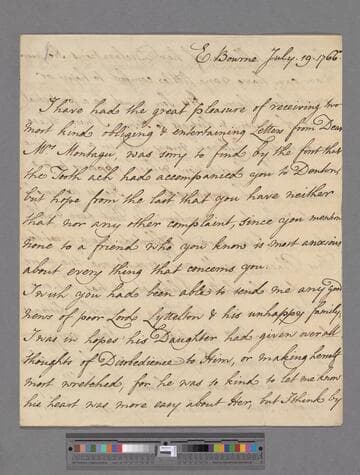 E Bourne July 19. 1766.
I have had the great pleasure of receiving two
most kind obliging & entertaining Letters from Dear
Mrs Montagu, was sorry to find by the first that
the Tooth ach had accompanied you to Denton,
but hope from the last that you have neither
that nor any other complaint, since you mention
none to a friend who you know is most anxious
about every thing that concerns you.
I wish you had been able to send me any good
news of poor Lord Lyttelton & his unhappy family,
I was in hopes his Daughter had given over all
thoughts of Disobedience to Him, or making herself
most wretched, for he was so kind to let me know
his heart was more easy about Her, but I think by